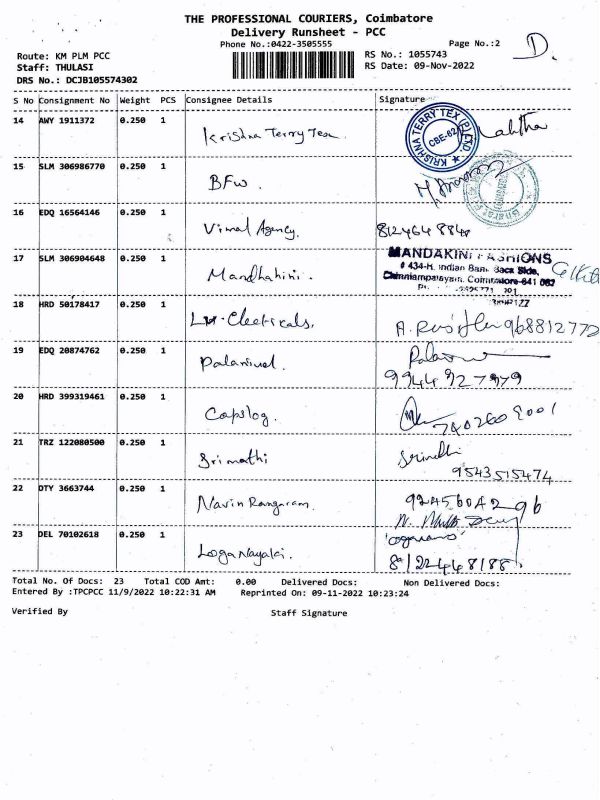 THE PROFESSIONAL COURIERS, Coimbatore
Delivery Runsheet - PCC
Phone No.:0422-3505555
Page No.:2 D.
Route: KM PLM PCC
RS No.: 1055743
Staff: THULASI
RS Date: 09-Nov-2022
DRS No.: DCJB105574302
S No Consignment No Weight PCS Consignee Details Signature
14 AWY 1911372 0.250 1 Krishna Terry Tex. Lalitha
KRISHNA TERRY TEX (P) LTD. CBE-62
15 SLM 306986770 0.250 1 BFW.
16 EDQ 16564146 0.250 1 Vimal Agency.
17 SLM 306904648 0.250 1 Mandhahini.
MANDAKINI FASHIONS
# 434-H, Indian Bank Back Side,
Chinniampalayam, Coimbatore-641 062
18 HRD 50178417 0.250 1 LM. Electricals.
19 EDQ 20874762 0.250 1 Palanivel.
9944927979
20 HRD 399319461 0.250 1 Capslog.
21 TRZ 122080500 0.250 1 Srimathi
9543515474
22 DTY 3663744 0.250 1 Navin Rangaram.
23 DEL 70102618 0.250 1 LogaNayaki.
8122448188
Total No. Of Docs: 23 Total COD Amt: 0.00 Delivered Docs: Non Delivered Docs:
Entered By :TPCPCC 11/9/2022 10:22:31 AM Reprinted On: 09-11-2022 10:23:24
Verified By Staff Signature